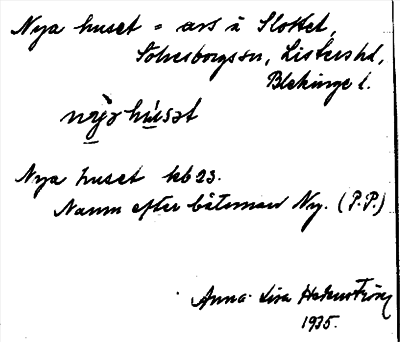 Nya huset = avs å Slottet,
Sölvesborgs sn, Listers hd,
Blekinge l.
nỳa hu̇́sət
Nya huset kb 23.
Namn efter båtsman Ny. (P.P.)
Anna-Lisa
1935.